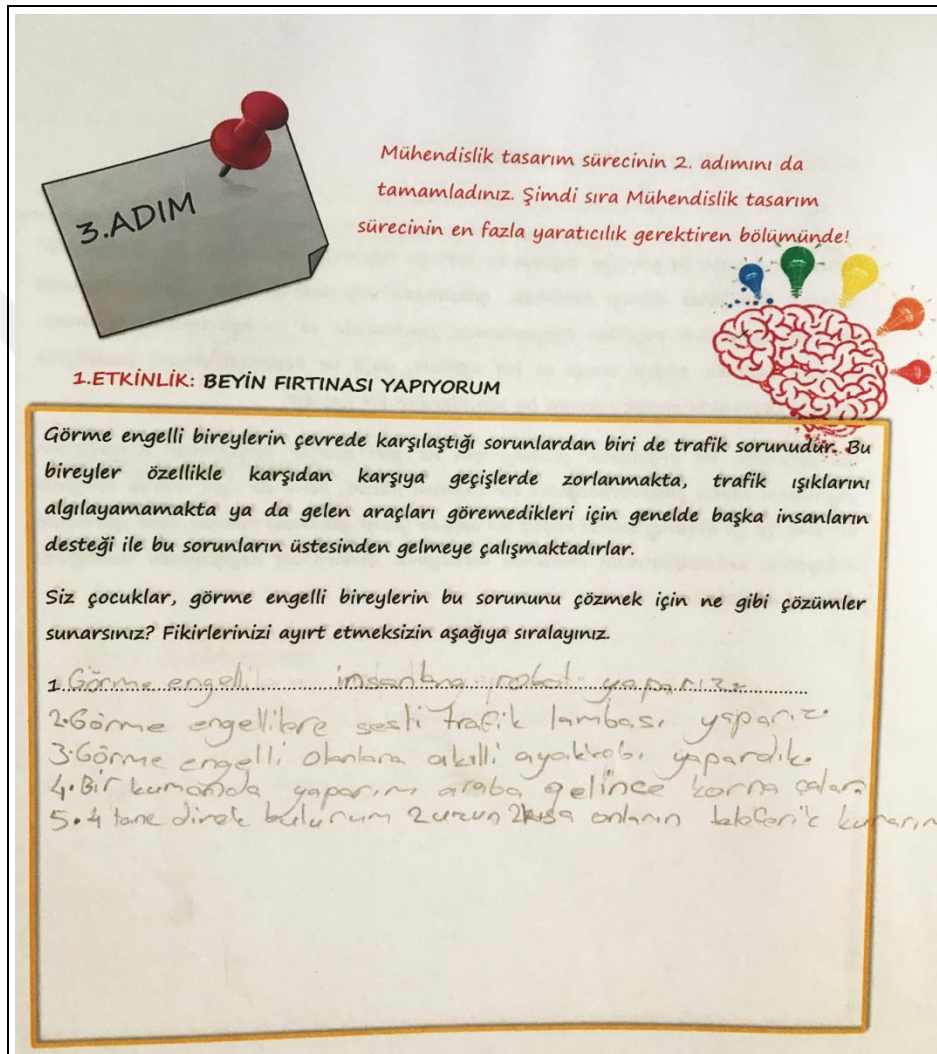 3.ADIM
Mühendislik tasarım sürecinin 2. adımını da
tamamladınız. Şimdi sıra Mühendislik tasarım
sürecinin en fazla yaratıcılık gerektiren bölümünde!
1.ETKİNLİK: BEYİN FIRTINASI YAPIYORUM
Görme engelli bireylerin çevrede karşılaştığı sorunlardan biri de trafik sorunudur. Bu
bireyler özellikle karşıdan karşıya geçişlerde zorlanmakta, trafik ışıklarını
algılayamamakta ya da gelen araçları göremedikleri için genelde başka insanların
desteği ile bu sorunların üstesinden gelmeye çalışmaktadırlar.
Siz çocuklar, görme engelli bireylerin bu sorununu çözmek için ne gibi çözümler
sunarsınız? Fikirlerinizi ayırt etmeksizin aşağıya sıralayınız.
1.Görme engelli insanlara robot yaparız.
2.Görme engellilere sesli trafik lambası yaparız.
3.Görme engelli olanlara akılli ayakkabı yapardık.
4.Bir kumanda yaparım araba gelince korna çalar.
5.4 tane direk bulurum 2 uzun 2 kısa onların teleferik kurarım